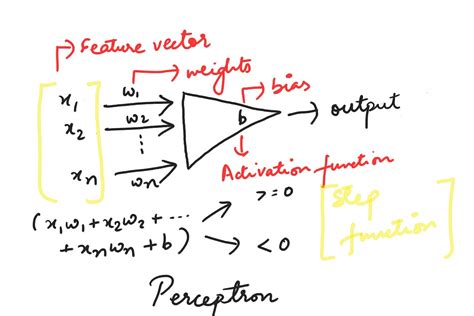 Feature vector
w1 weights
x1 bias
x2 w2 b output
⋮
xn wn Activation function
(x1w1+x2w2+⋯ >=0
+xnwn+b) <0
Step
function
Perceptron